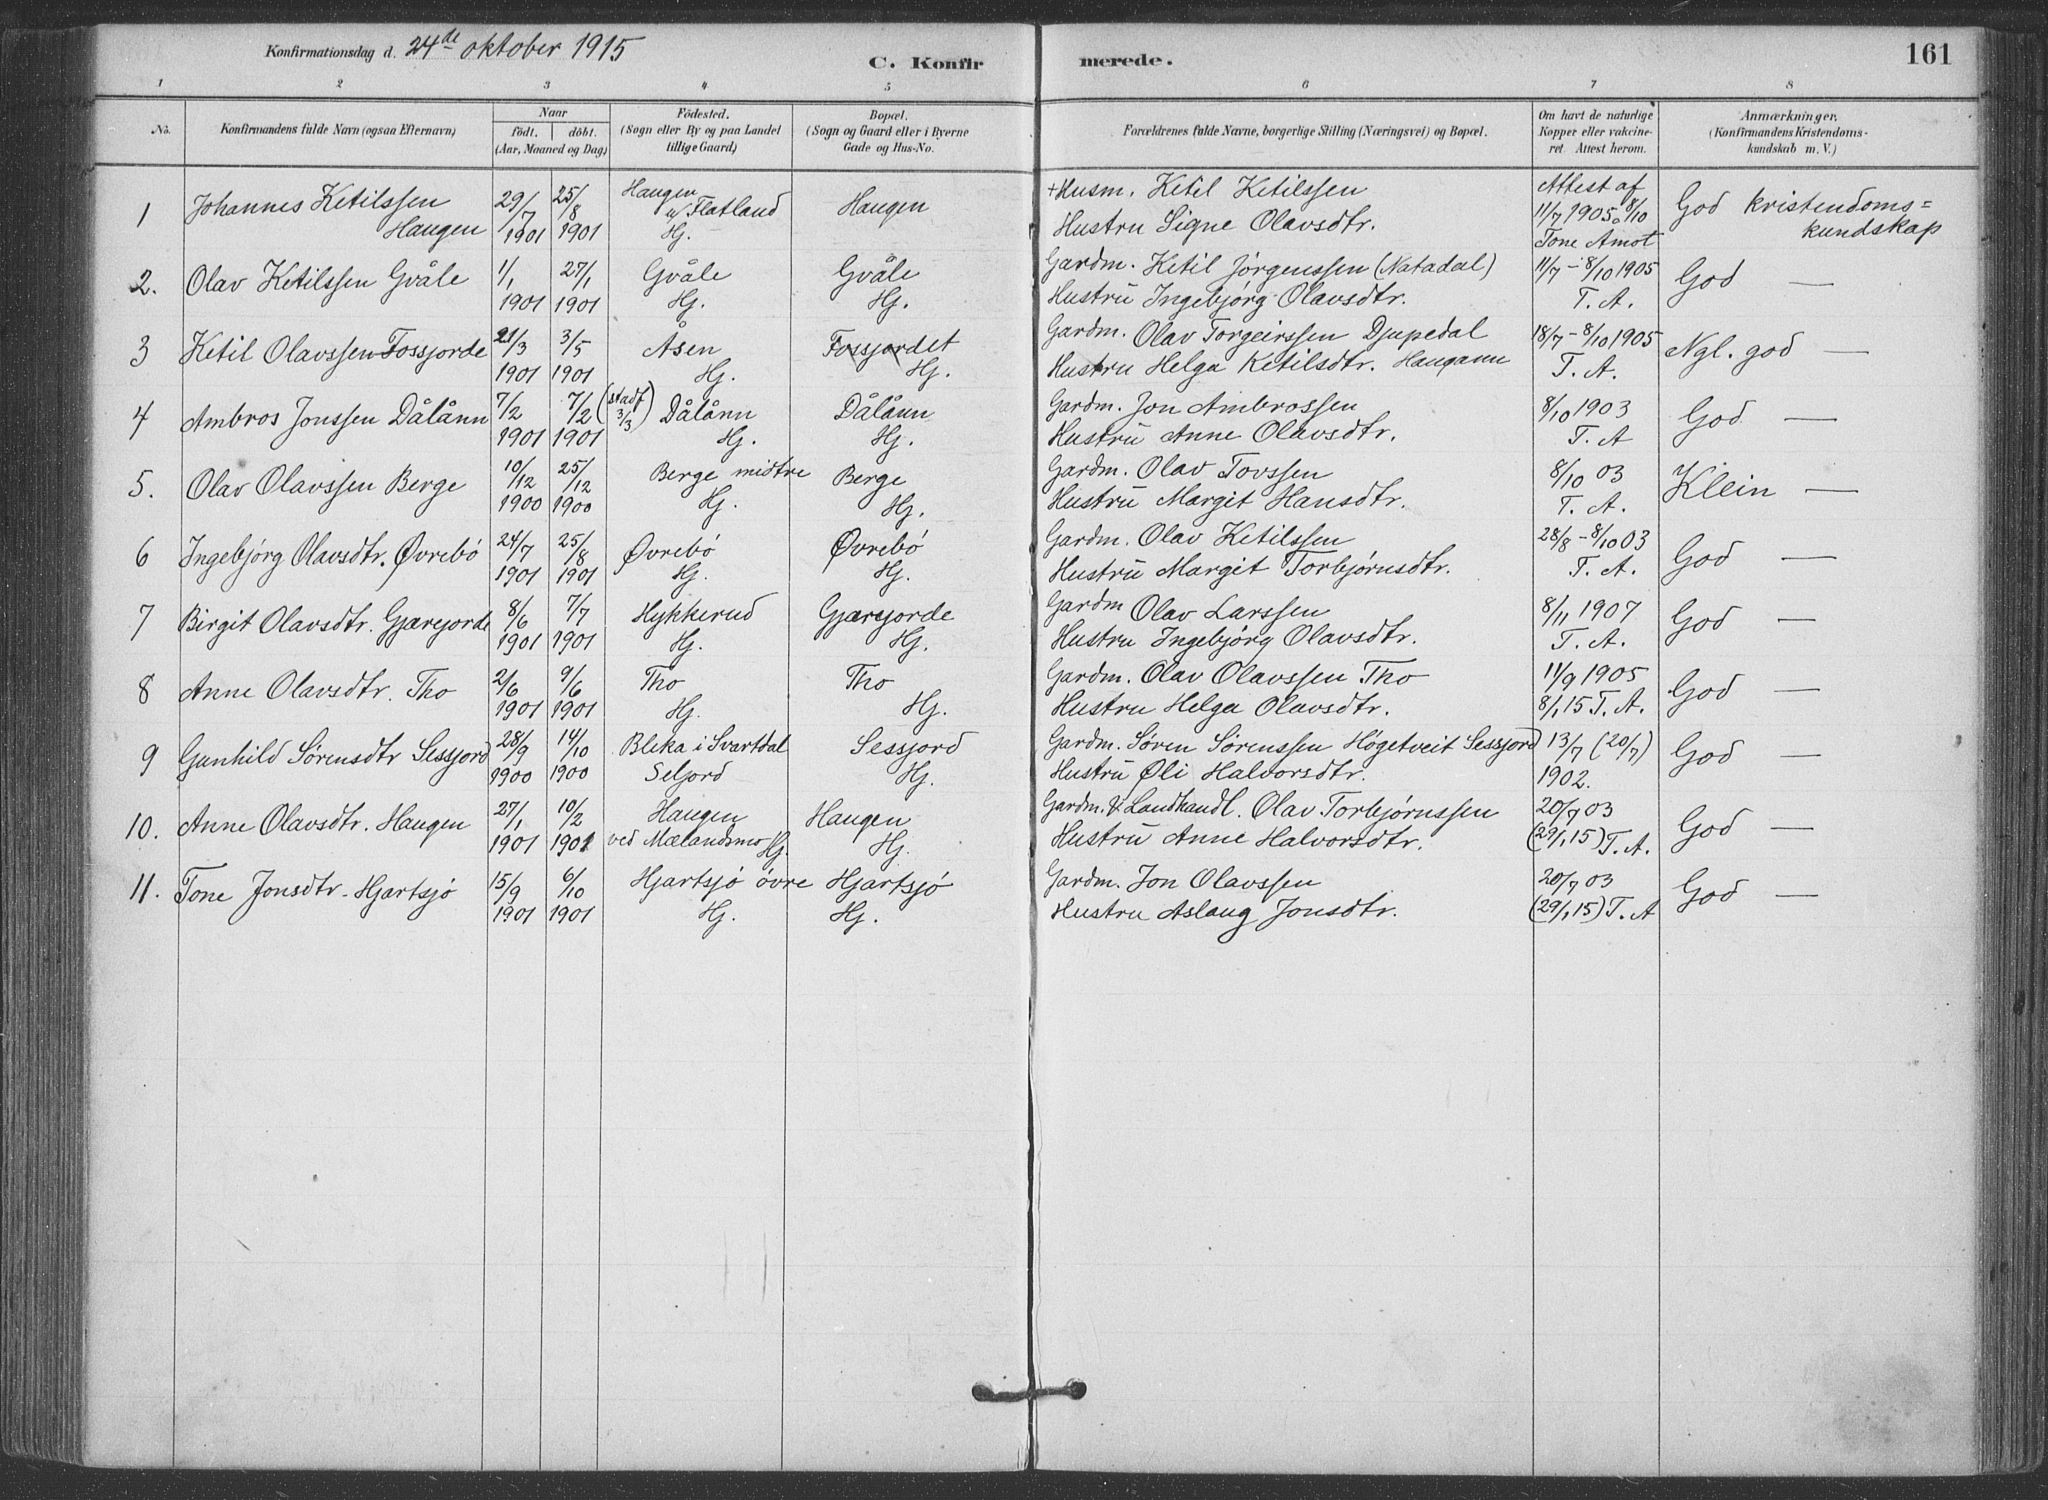 Konfirmationsdag d. 24de oktober 1915
C. Konfirmerede.
161
1 2 3 4 5 6 7 8
No.
Konfirmandens fulde Navn (ogsaa Efternavn)
Naar
födt. döbt.
(Aar, Maaned og Dag)
Födested.
(Sogn eller By og paa Landet
tillige Gaard)
Bopæl.
(Sogn og Gaard eller i Byerne
Gade og Hus-No.
Forældrenes fulde Navne, borgerlige Stilling (Næringsvei) og Bopæl.
Om havt de naturlige
Kopper eller vakcine-
ret. Attest herom.
Anmærkninger.
(Konfirmandens Kristendoms-
kundskab m. V.)
1 Johannes Ketilssen Haugen 29/7 1901 25/8 1901 Haugen u/ Flatland Hj. Haugen
+Husm. Ketil Ketilssen
Hustru Signe Olavsdtr.
Attest af 11/7 1905 8/10 Tone Amot
God kristendoms=kundskap
2. Olav Ketilssen Gvåle 1/1 1901 27/1 1901 Gvåle Hj. Gvåle Hj.
Gardm. Ketil Jørgenssen (Natadal)
Hustru Ingebjörg Olavsdtr.
11/7 - 8/10 1905 T. A.
God —
3 Ketil Olavssen Fossjorde 21/3 1901 3/5 1901 Åsen Hj. Fossjordet Hj.
Gardm. Olav Torgeirssen Djupedal
Hustru Helga Ketilsdtr. Haugann
18/7 - 8/10 1905 T. A.
Ngl. god —
4 Ambros Jonssen Dålånn 7/2 1901 7/2 1901 (stadf 3/3) Dålånn Hj. Dålånn Hj.
Gardm. Jon Ambrossen
Hustru Anne Olavsdtr.
8/10 1903 T. A
God —
5. Olav Olavssen Berge 10/12 1900 25/12 1900 Berge midtre Hj. Berge Hj.
Gardm. Olav Tovssen
Hustru Margit Hansdtr.
8/10 03 T. A.
Klein —
6 Ingebjörg Olavsdtr. Øvrebö 24/7 1901 25/8 1901 Øvrebö Hj. Øvrebö Hj.
Gardm. Olav Ketilssen
Hustru Margit Torbjørnsdtr.
28/8 - 8/10 03 T. A.
God —
7 Birgit Olavsdtr. Gjærejorde 8/6 1901 7/7 1901 Hykkerud Hj. Gjærejorde Hj.
Gardm Olav Larssen
Hustru Ingebjörg Olavsdtr.
8/11 1907 T. A.
God —
8 Anne Olavsdtr. Tho 2/6 1901 9/6 1901 Tho Hj. Tho Hj.
Gardm. Olav Olavssen Tho
Hustru Helga Olavsdtr.
11/9 1905 8/1 15 T. A.
God —
9 Gunhild Sørensdtr Sessjord 28/9 1900 14/10 1900 Bleka i Svartdal Seljord Sessjord Hj.
Gardm. Søren Sørenssen Høgetveit Sessjord
Hustru Øli Halvorsdtr.
13/7 (20/7) 1902.
God —
10. Anne Olavsdtr. Haugen 27/1 1901 10/2 1901 Haugen ved Mælandsmo Hj. Haugen Hj.
Gardm. & Landhandl. Olav Torbjørnssen
Hustru Anne Halvorsdtr.
20/7 03 (29/1 15) T. A.
God —
11. Tone Jonsdtr. Hjartsjö 15/9 1901 6/10 1901 Hjartsjö övre Hj. Hjartsjö Hj.
Gardm. Jon Olavssen
Hustru Aslaug Jonsdtr.
20/7 03 (29/1 15) T. A
God —